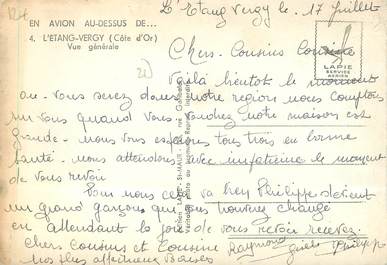 EN AVION AU-DESSUS DE...
4. L'ETANG-VERGY (Côte d'Or)
Vue générale
L'Etang Vergy le 17 juillet
LAPIE
SERVICE
AERIEN
Chers Cousins Cousine
voilà bientôt le moment
ou vous serez dans notre region nous comptons
sur vous quand vous voudrez notre maison est
grande nous vous espérons tous trois en bonne
santé. nous attendons avec impatience le moment
de vous revoir
Pour nous cela va bien Philippe devient
un grand garçon que vous trouverez changé
en attendant la joie de vous revoir recevez
Chers cousins et Cousine
nos plus affectueux Baisers
Raymond Philippe